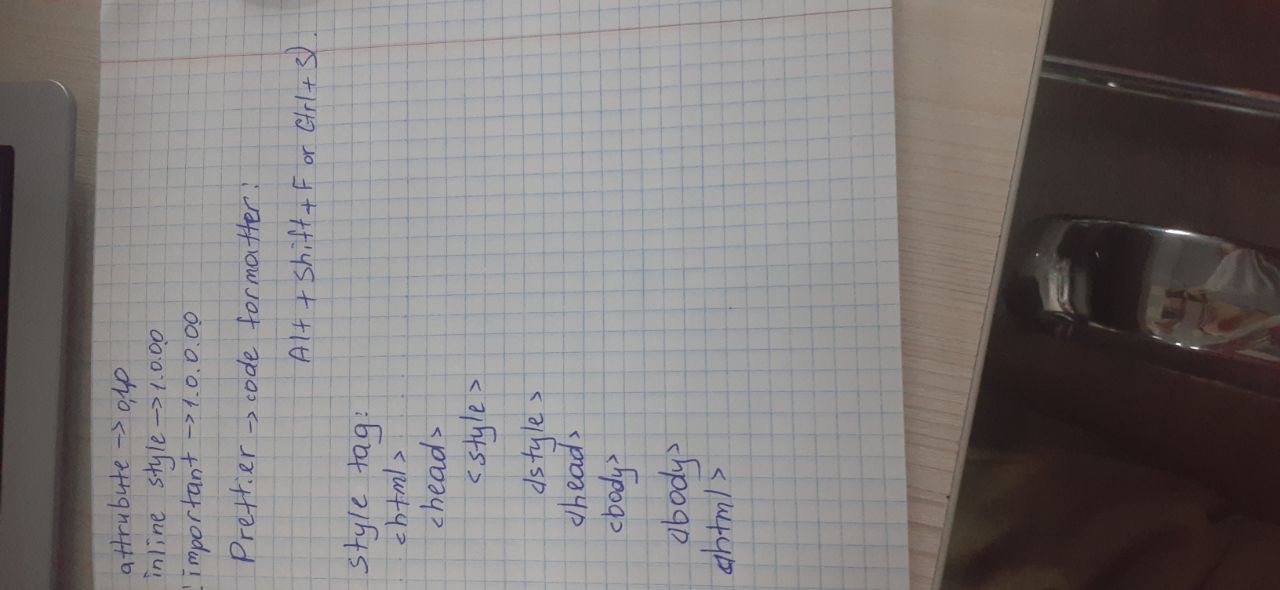 attrubute -> 0,1,0
inline style -> 1.0.00
! important -> 1.0.0.00
Prettier -> code formatter:
Alt + Shift + F or Ctrl + 3)
style tag:
<html>
<head>
<style>
</style>
</head>
<body>
</body>
</html>